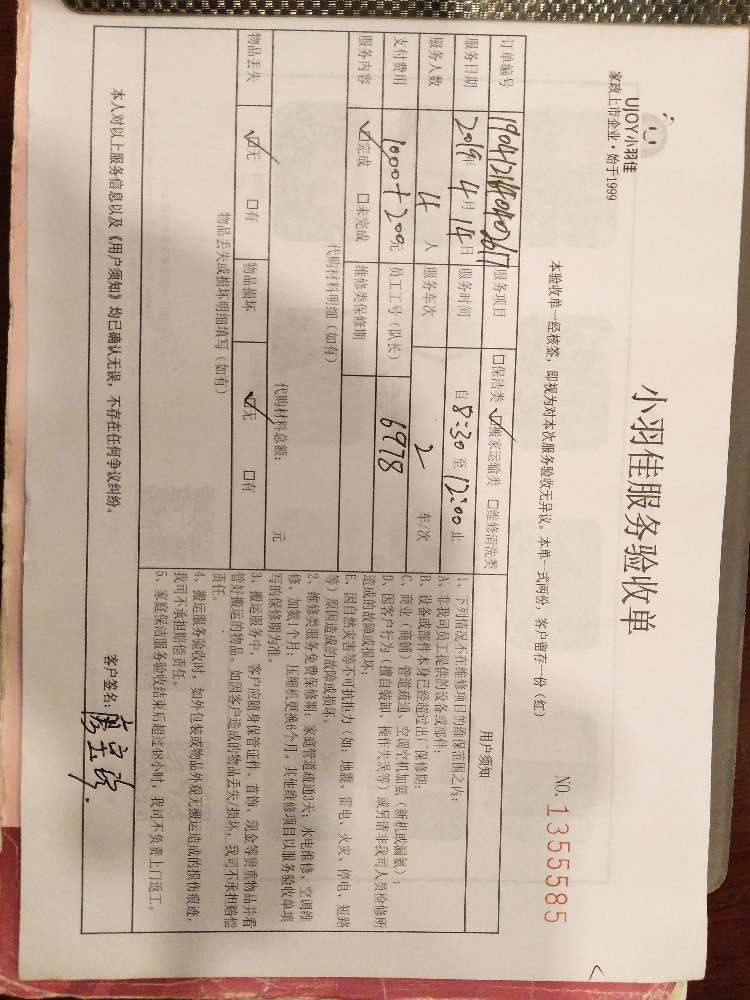 UJOY小羽佳
家政上市企业·始于1999
小羽佳服务验收单
本验收单一经核签，即视为对本次服务验收无异议。本单一式两份，客户留存一份（红）
NO. 1355585
订单编号 服务项目 □保洁类 ☑搬家运输类 □维修清洗类
服务日期 2019年 4月 14日 服务时间 自 8:30 至 12:00 止
服务人数 4 人 服务车次 2 车/次
支付费用 1000+200元 员工工号（队长） 6978
服务内容 ☑完成 □未完成 维修类保修期
代购材料明细（如有）
代购材料总额： 元
物品丢失 ☑无 □有 物品损坏 ☑无 □有
物品丢失或损坏明细填写（如有）
用户须知
1、下列情况不在维修项目的维保范围之内：
A、非我司员工提供的设备或部件；
B、设备或部件本身已经超过出厂保修期；
C、商业（商铺）管道疏通、空调空和加氨（新机或漏氨）；
D、因客户行为（擅自装卸、操作失误等）或另请非我司人员检修所
造成的故障或损坏；
E、因自然灾害等不可抗拒力（如：地震、雷电、火灾、停电、短路
等）原因造成的故障或损坏。
2、维修类服务免费保修期：家庭管道疏通3天；水电维修、空调维
修、加氨1个月；压缩机更换6个月。其他维修项目以服务验收单填
写的保修期为准。
3、搬运服务中，客户应随身保管证件、首饰、现金等贵重物品并看
管好搬运的物品。如因客户造成的物品丢失/损坏，我司不承担赔偿
责任。
4、搬运服务验收时，如外包装或物品外观无搬运造成的损伤痕迹，
我司不承担赔偿责任。
5、家庭保洁服务验收结束后超过48小时，我司不负责上门返工。
本人对以上服务信息以及《用户须知》均已确认无误，不存在任何争议纠纷。
客户签名：